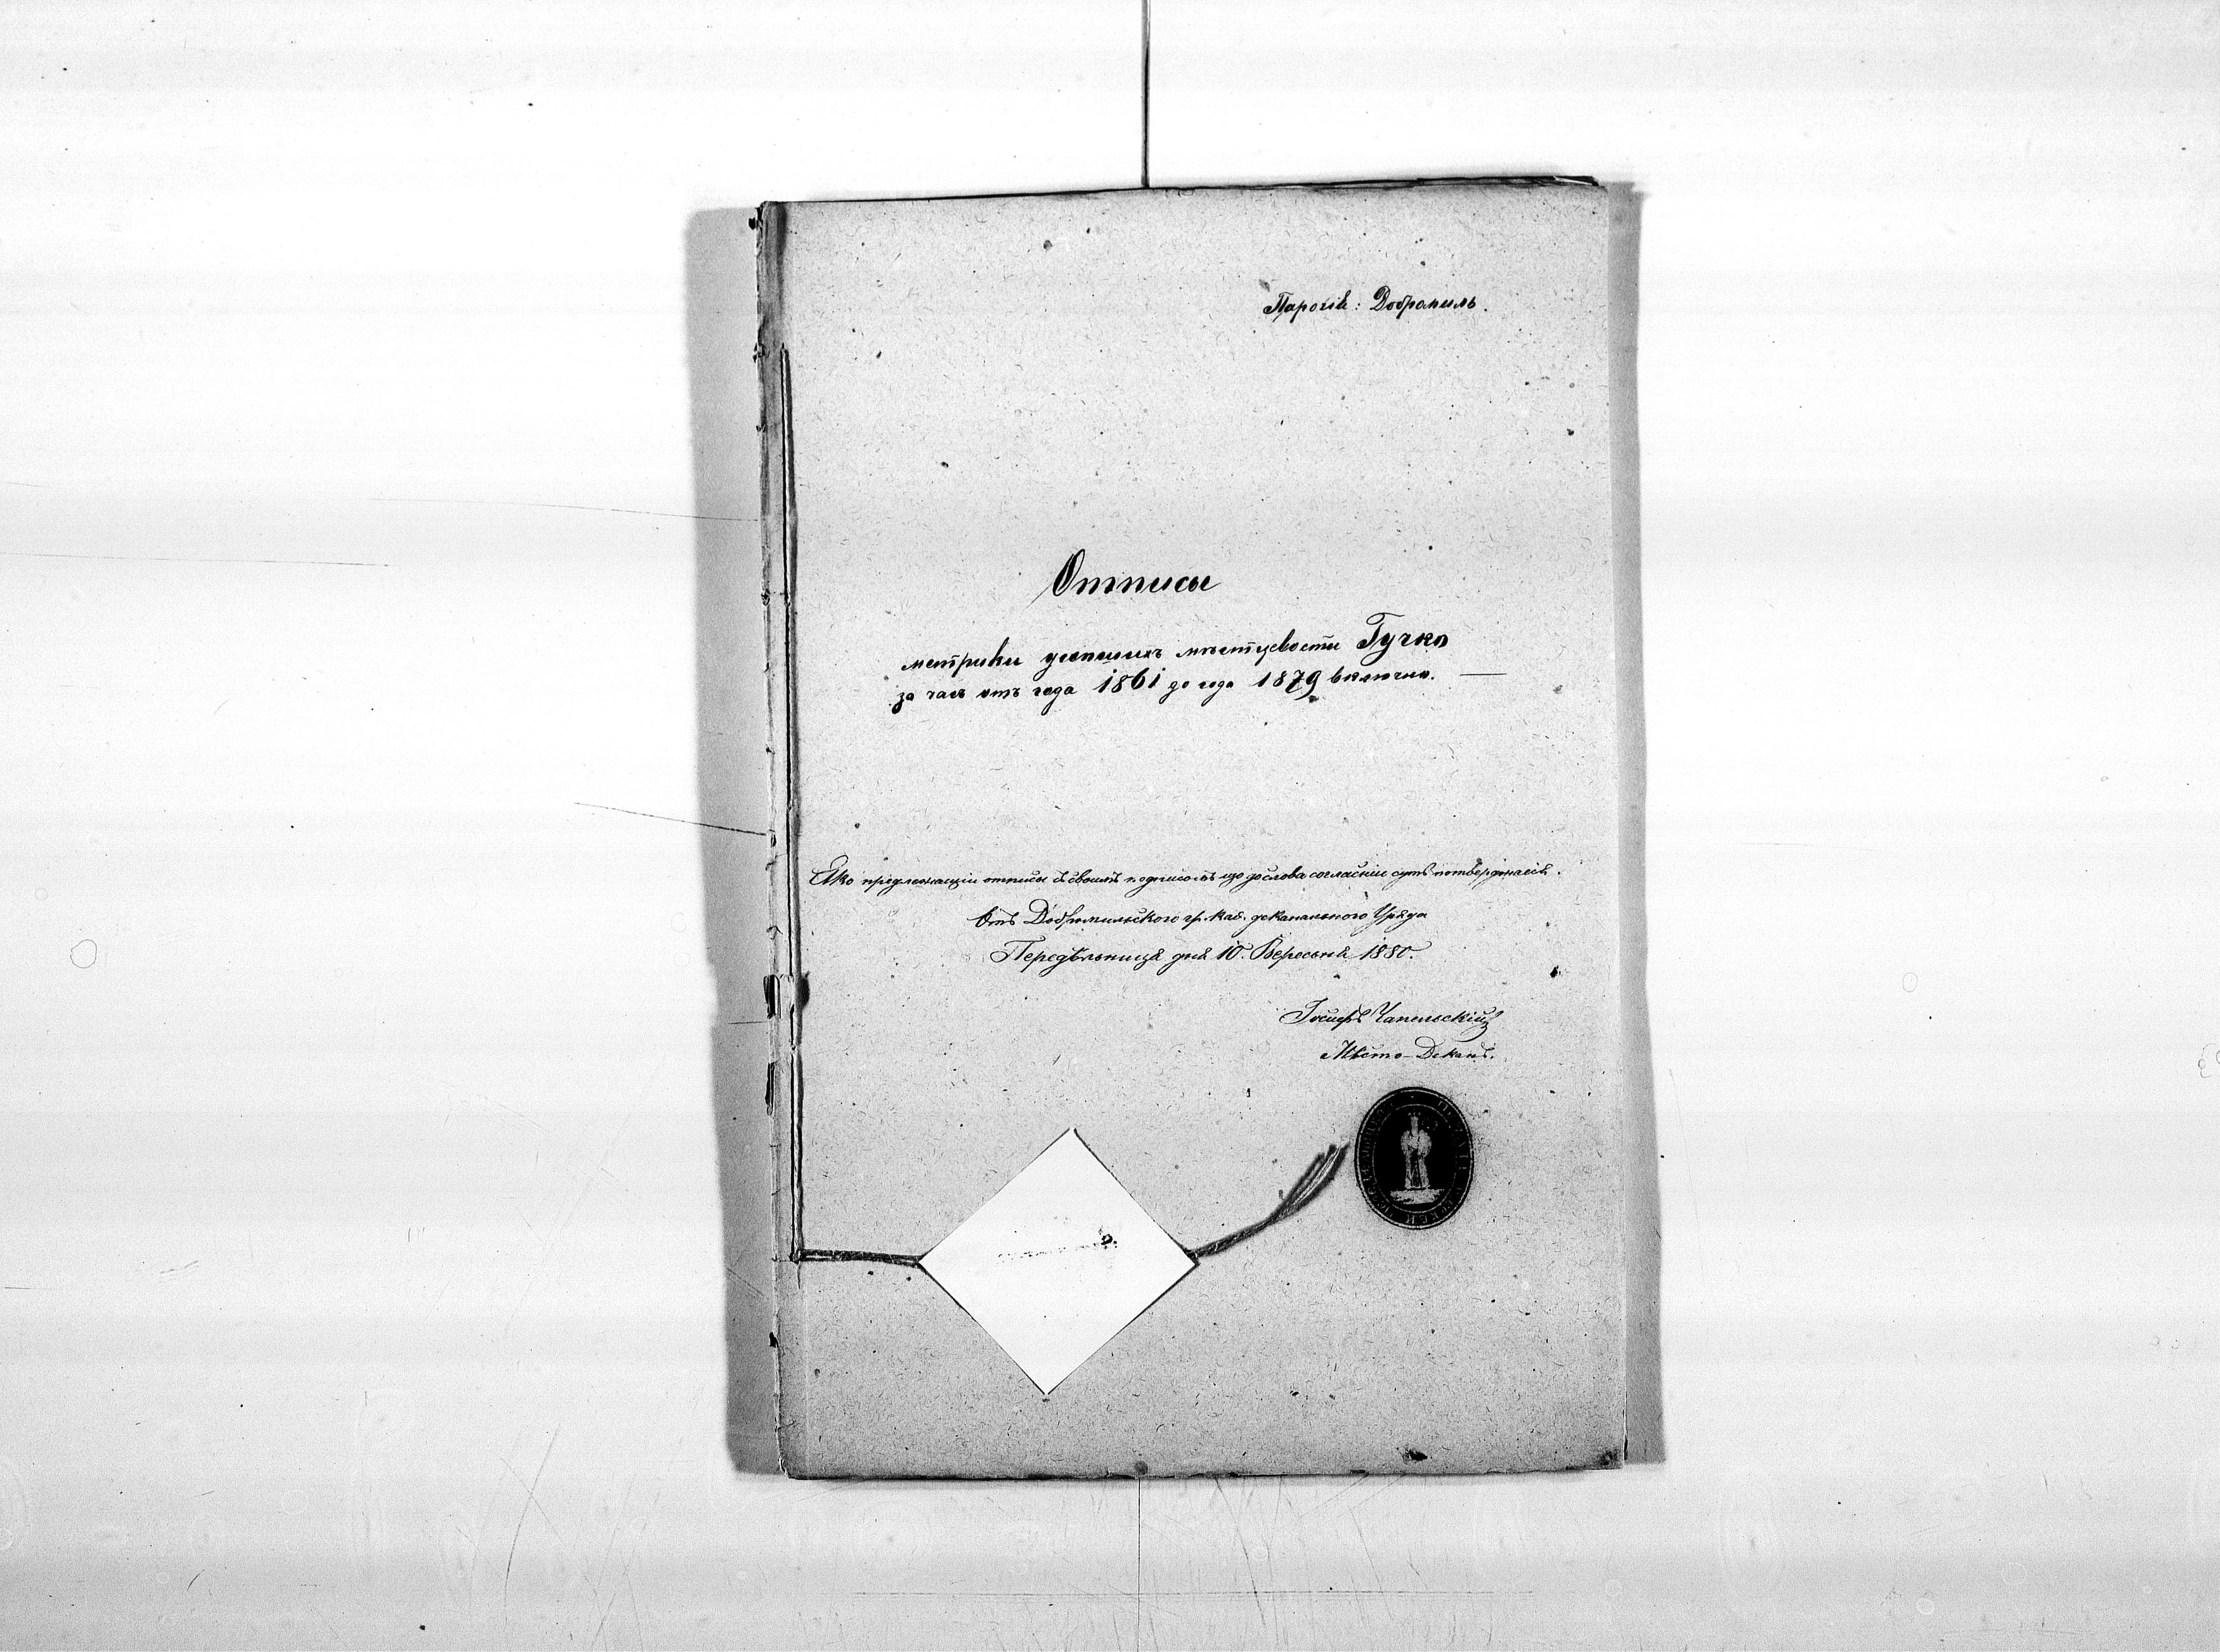 Парохія: Добромиль.
Отписы
метрики усопшихъ мѣстцевости Гучко
за часъ отъ года 1861 до года 1879 включно. —
Яко предлежащіи отписы съ своимъ подписомъ що до слова согласніи суть потверджаесь.
Отъ Добромильского гр. каѳ. деканального Уряда
Передѣльница дня 10. Вересня 1880.
Іосифъ Чапельскій
Мѣсто-Деканъ.